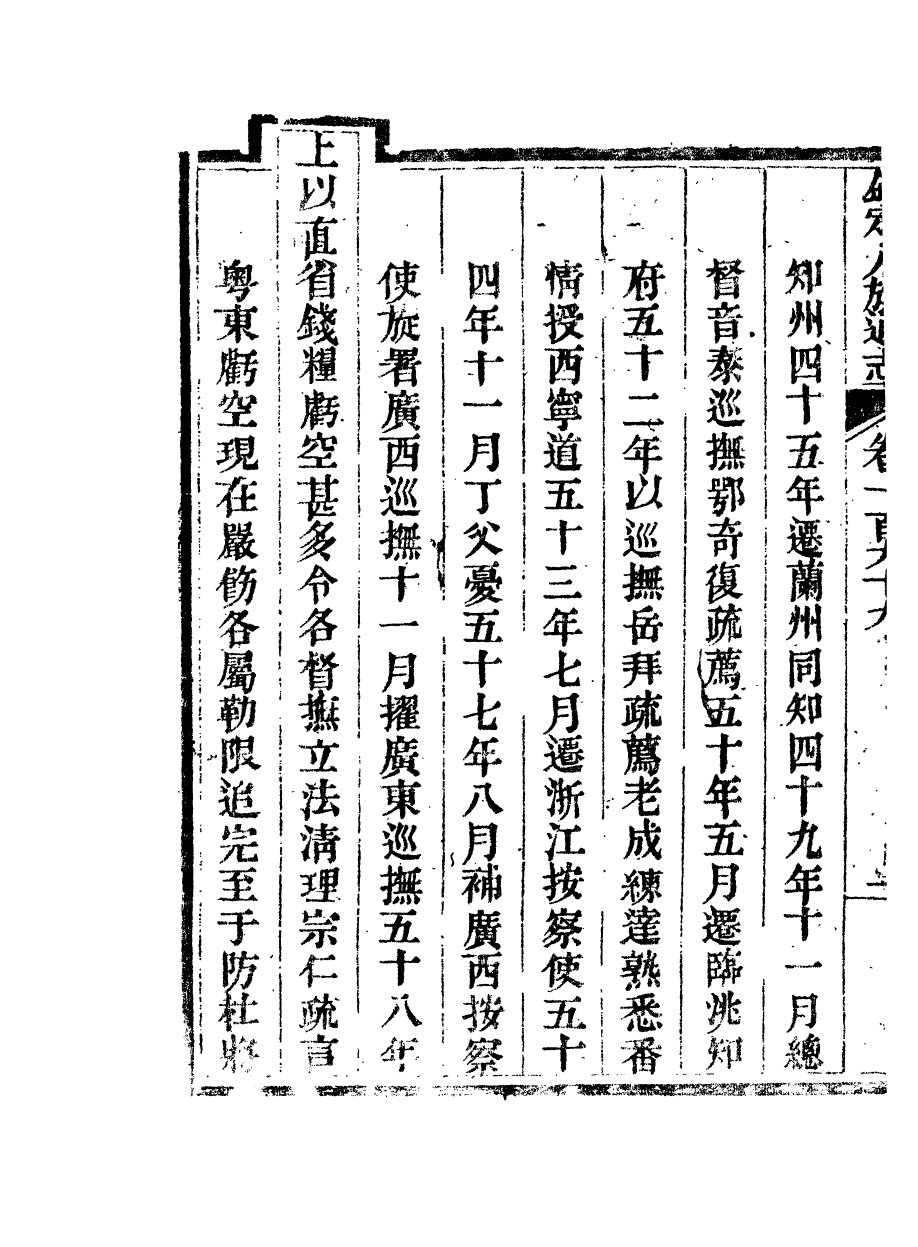 欽定八旗通志 卷一百九十九 二
知州四十五年遷蘭州同知四十九年十一月總
督音泰巡撫鄂奇復疏薦五十年五月遷臨洮知
府五十二年以巡撫岳拜疏薦老成練達熟悉番
情授西寧道五十三年七月遷浙江按察使五十
四年十一月丁父憂五十七年八月補廣西按察
使旋署廣西巡撫十一月擢廣東巡撫五十八年
上以直省錢糧虧空甚多令各督撫立法清理宗仁疏言
粵東虧空現在嚴飭各屬勒限追完至于防杜將